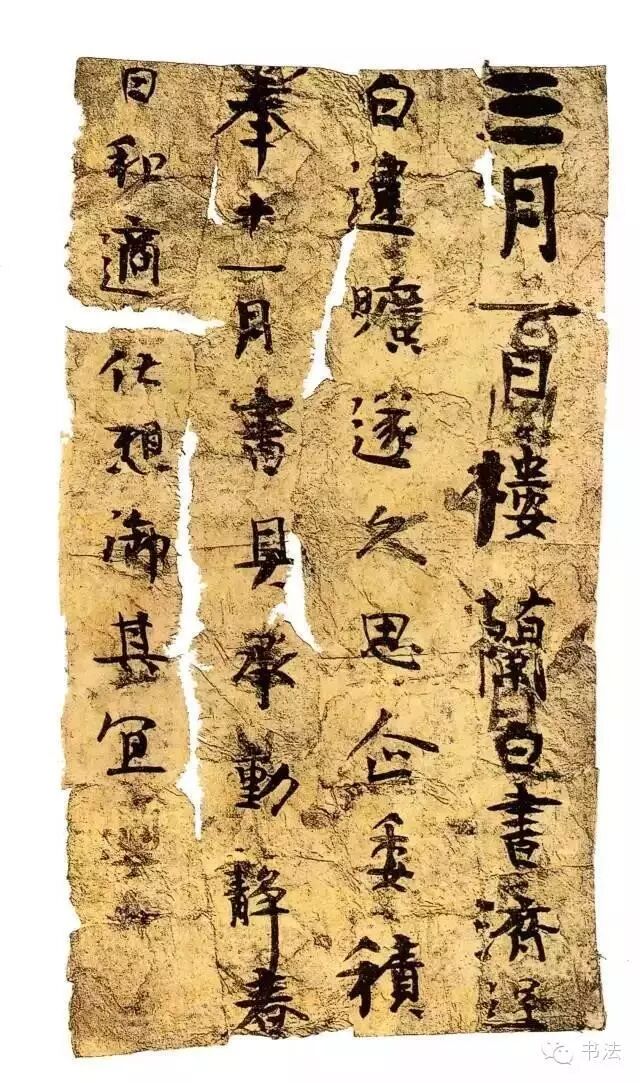 三月一日樓蘭白書濟逞
白違曠遂久思企委積
奉十一月書具承動静春
日和適伏想御其宜
书法